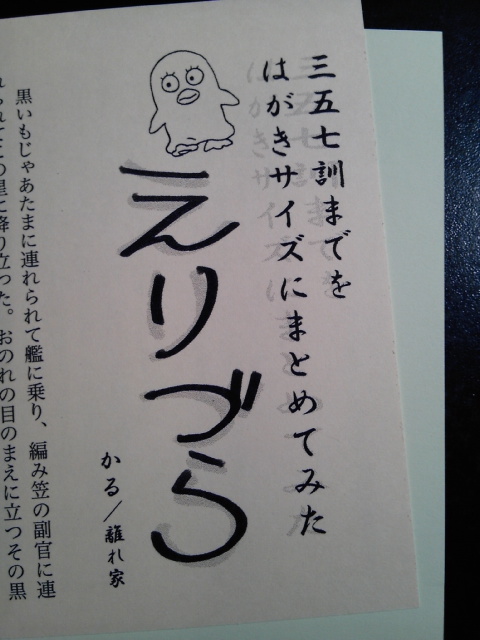 三五七訓までを
はがきサイズにまとめてみた
えりづら
かる／離れ家
黒いもじゃあたまに連れられて艦に乗り、編み笠の副官に連
れられてこの星に降り立った。おのれの目のまえに立つその黒